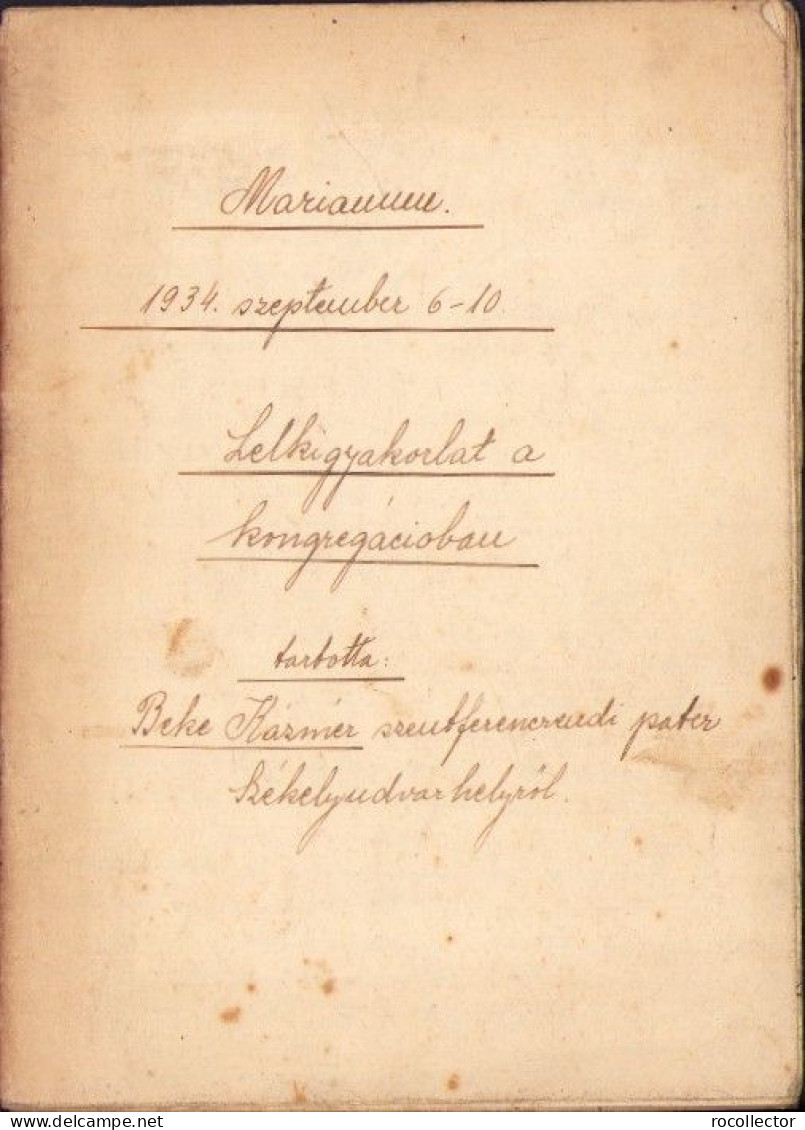 Marianum.
1934. szeptember 6-10.
Lelkigyakorlat a
kongregációban
tartotta:
Beke Kázmér szentferencrendi páter
Székelyudvarhelyről.
Delcampe.net
rocollector